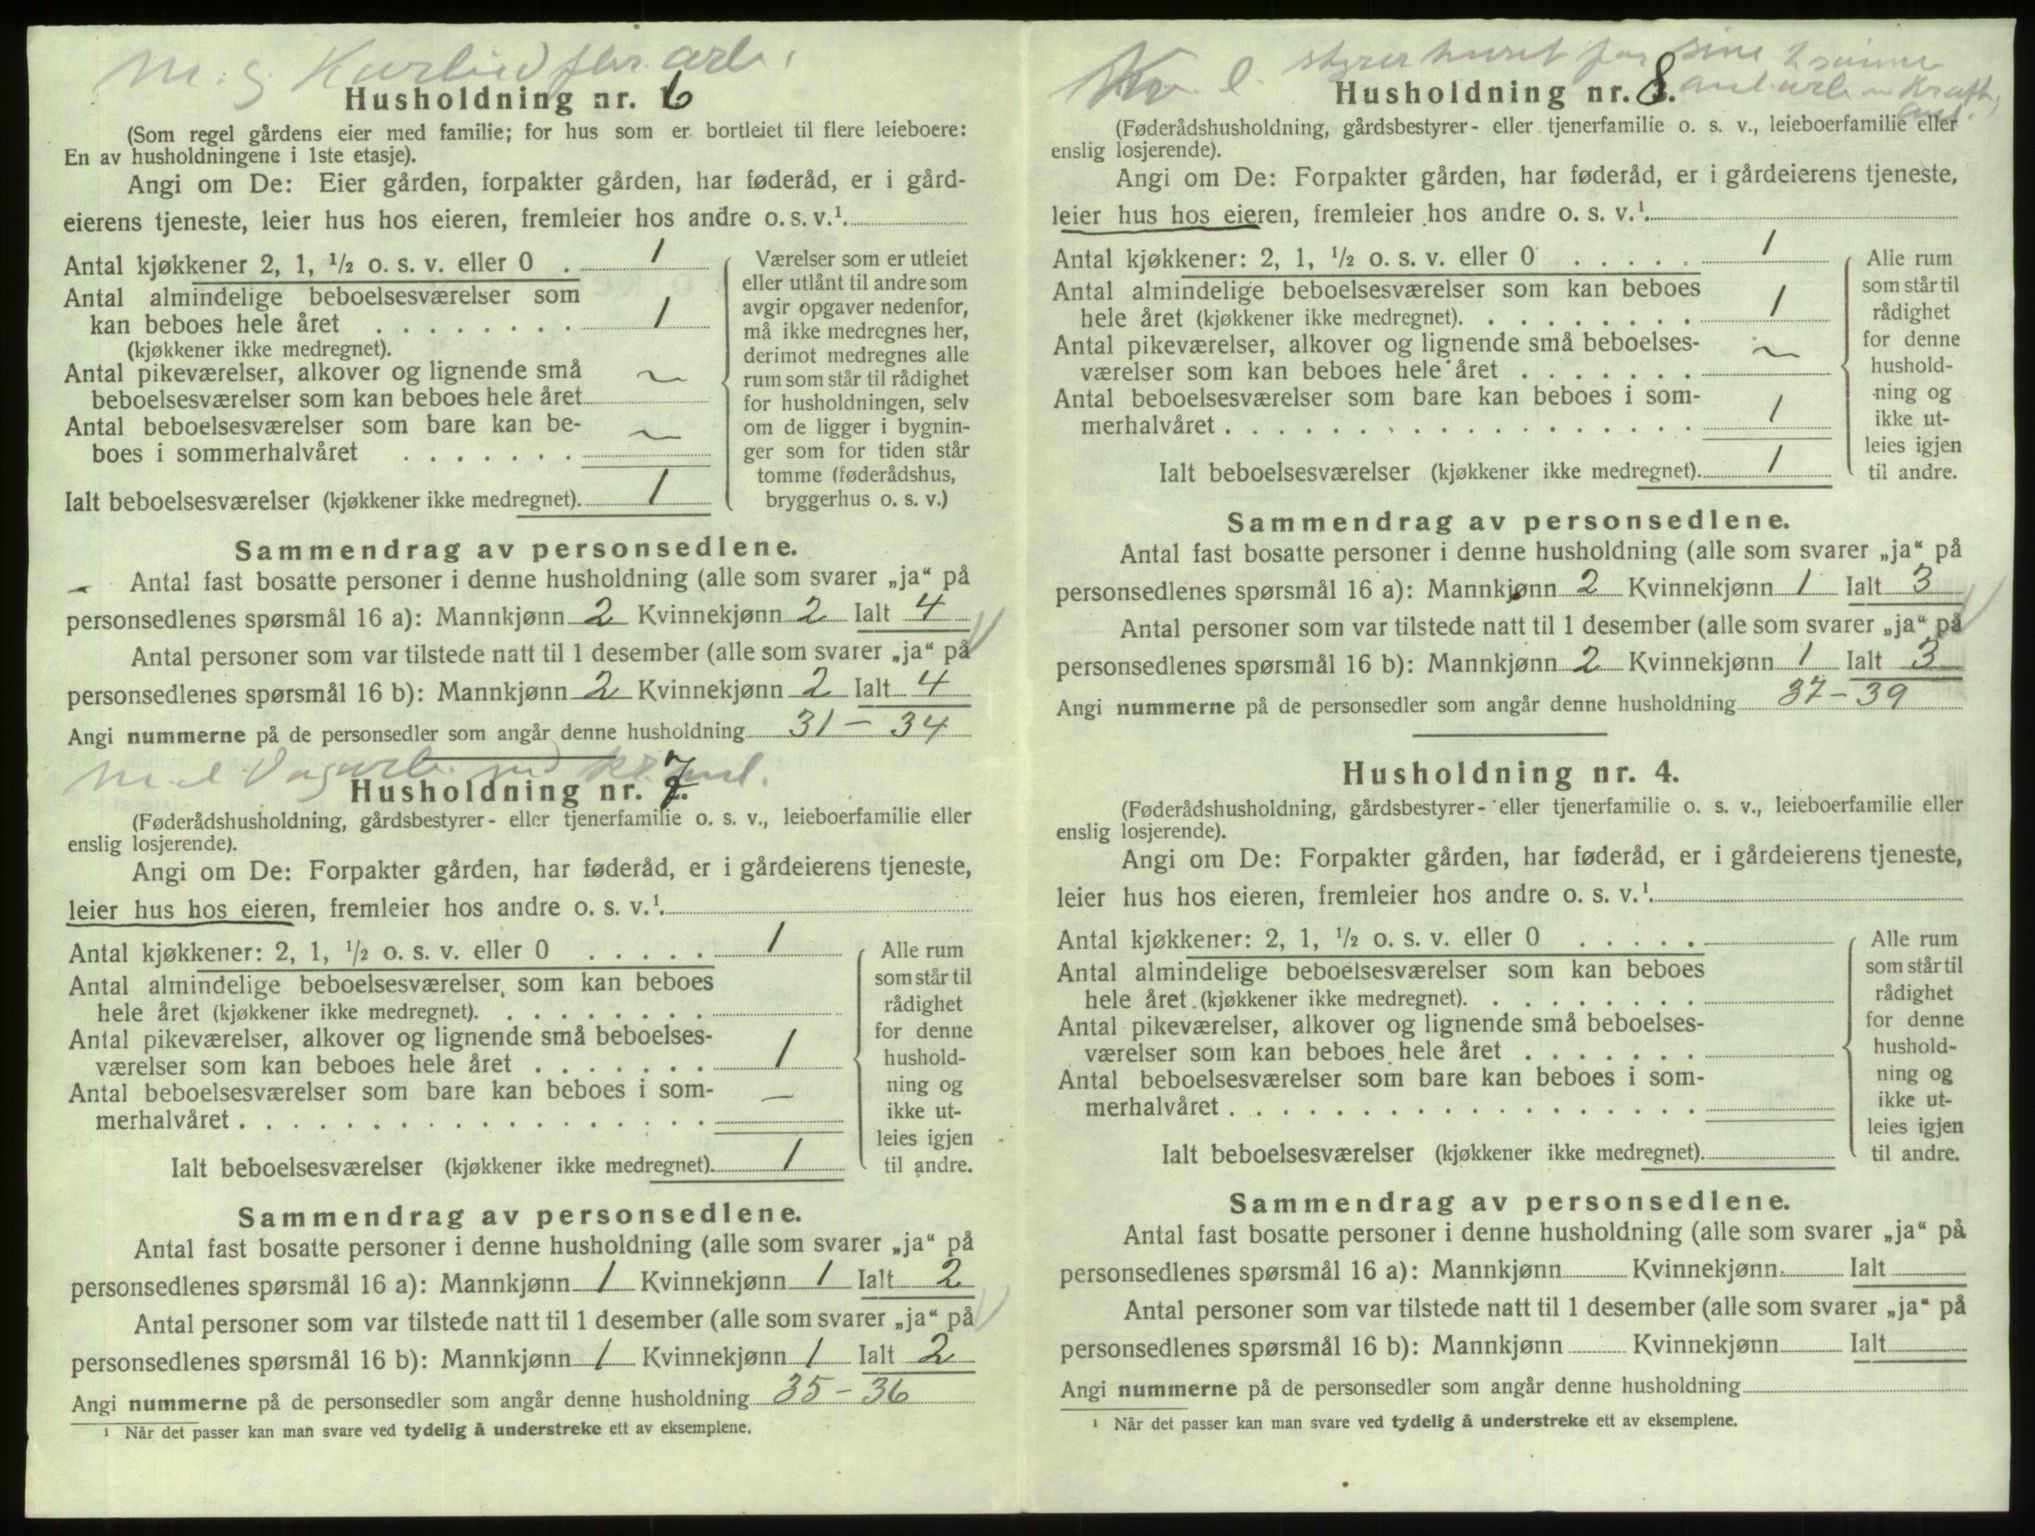 M. g.
Husholdning nr. 6
(Som regel gårdens eier med familie; for hus som er bortleiet til flere leieboere:
En av husholdningene i 1ste etasje).
Angi om De: Eier gården, forpakter gården, har føderåd, er i gård-
eierens tjeneste, leier hus hos eieren, fremleier hos andre o. s. v.¹
Antal kjøkkener 2, 1, ½ o. s. v. eller 0 . 1
Antal almindelige beboelsesværelser som
kan beboes hele året . . . . . . . . 1
(kjøkkener ikke medregnet).
Antal pikeværelser, alkover og lignende små
beboelsesværelser som kan beboes hele året ~
Antal beboelsesværelser som bare kan be-
boes i sommerhalvåret . . . . . . . ~
Ialt beboelsesværelser (kjøkkener ikke medregnet). 1
Værelser som er utleiet
eller utlånt til andre som
avgir opgaver nedenfor,
må ikke medregnes her,
derimot medregnes alle
rum som står til rådighet
for husholdningen, selv
om de ligger i bygnin-
ger som for tiden står
tomme (føderådshus,
bryggerhus o. s. v.)
Sammendrag av personsedlene.
Antal fast bosatte personer i denne husholdning (alle som svarer „ja“ på
personsedlenes spørsmål 16 a): Mannkjønn 2 Kvinnekjønn 2 Ialt 4
Antal personer som var tilstede natt til 1 desember (alle som svarer „ja“ på
personsedlenes spørsmål 16 b): Mannkjønn 2 Kvinnekjønn 2 Ialt 4
Angi nummerne på de personsedler som angår denne husholdning 31 – 34
M. l
Husholdning nr. 7.
(Føderådshusholdning, gårdsbestyrer- eller tjenerfamilie o. s. v., leieboerfamilie eller
enslig losjerende).
Angi om De: Forpakter gården, har føderåd, er i gårdeierens tjeneste,
leier hus hos eieren, fremleier hos andre o. s. v.¹
Antal kjøkkener: 2, 1, ½ o. s. v. eller 0 . . . . . 1
Antal almindelige beboelsesværelser som kan beboes
hele året (kjøkkener ikke medregnet). . . . . . . . .
Antal pikeværelser, alkover og lignende små beboelses-
værelser som kan beboes hele året . . . . . . . 1
Antal beboelsesværelser som bare kan beboes i som-
merhalvåret . . . . . . . . . . . . . . . . . . –
Ialt beboelsesværelser (kjøkkener ikke medregnet). 1
Alle rum
som står til
rådighet
for denne
hushold-
ning og
ikke ut-
leies igjen
til andre.
Sammendrag av personsedlene.
Antal fast bosatte personer i denne husholdning (alle som svarer „ja“ på
personsedlenes spørsmål 16 a): Mannkjønn 1 Kvinnekjønn 1 Ialt 2
Antal personer som var tilstede natt til 1 desember (alle som svarer „ja“ på
personsedlenes spørsmål 16 b): Mannkjønn 1 Kvinnekjønn 1 Ialt 2
Angi nummerne på de personsedler som angår denne husholdning 35 – 36
¹ Når det passer kan man svare ved tydelig å understreke ett av eksemplene.
styrer huset for sine 2 sønner
Husholdning nr. 8.
(Føderådshusholdning, gårdsbestyrer- eller tjenerfamilie o. s. v., leieboerfamilie eller
enslig losjerende).
Angi om De: Forpakter gården, har føderåd, er i gårdeierens tjeneste,
leier hus hos eieren, fremleier hos andre o. s. v.¹
Antal kjøkkener: 2, 1, ½ o. s. v. eller 0 . . . . . 1
Antal almindelige beboelsesværelser som kan beboes
hele året (kjøkkener ikke medregnet). . . . . . . . . 1
Antal pikeværelser, alkover og lignende små beboelses-
værelser som kan beboes hele året . . . . . . . ~
Antal beboelsesværelser som bare kan beboes i som-
merhalvåret . . . . . . . . . . . . . . . . . . 1
Ialt beboelsesværelser (kjøkkener ikke medregnet). 1
Alle rum
som står til
rådighet
for denne
hushold-
ning og
ikke ut-
leies igjen
til andre.
Sammendrag av personsedlene.
Antal fast bosatte personer i denne husholdning (alle som svarer „ja“ på
personsedlenes spørsmål 16 a): Mannkjønn 2 Kvinnekjønn 1 Ialt 3
Antal personer som var tilstede natt til 1 desember (alle som svarer „ja“ på
personsedlenes spørsmål 16 b): Mannkjønn 2 Kvinnekjønn 1 Ialt 3
Angi nummerne på de personsedler som angår denne husholdning 37 – 39
Husholdning nr. 4.
(Føderådshusholdning, gårdsbestyrer- eller tjenerfamilie o. s. v., leieboerfamilie eller
enslig losjerende).
Angi om De: Forpakter gården, har føderåd, er i gårdeierens tjeneste,
leier hus hos eieren, fremleier hos andre o. s. v.¹
Antal kjøkkener: 2, 1, ½ o. s. v. eller 0 . . . . .
Antal almindelige beboelsesværelser som kan beboes
hele året (kjøkkener ikke medregnet). . . . . . . . .
Antal pikeværelser, alkover og lignende små beboelses-
værelser som kan beboes hele året . . . . . . .
Antal beboelsesværelser som bare kan beboes i som-
merhalvåret . . . . . . . . . . . . . . . . . .
Ialt beboelsesværelser (kjøkkener ikke medregnet).
Alle rum
som står til
rådighet
for denne
hushold-
ning og
ikke ut-
leies igjen
til andre.
Sammendrag av personsedlene.
Antal fast bosatte personer i denne husholdning (alle som svarer „ja“ på
personsedlenes spørsmål 16 a): Mannkjønn Kvinnekjønn Ialt
Antal personer som var tilstede natt til 1 desember (alle som svarer „ja“ på
personsedlenes spørsmål 16 b): Mannkjønn Kvinnekjønn Ialt
Angi nummerne på de personsedler som angår denne husholdning
¹ Når det passer kan man svare ved tydelig å understreke ett av eksemplene.